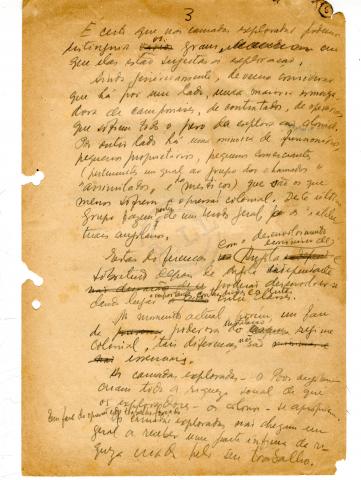 3
É certo que nas camadas exploradas podemos
distinguir os graus, em
que elas estão sujeitas à exploração.
Assim genericamente, devemos considerar
que há por um lado, uma maioria esmaga
dora de camponeses, de contratados, de operários
que sofrem todo o peso da exploração colonial.
Por outro lado há uma minoria de funcionários
pequenos proprietários, pequenos comerciantes
(pertencentes em geral ao grupo dos chamados
"assimilados, e "mestiços) que são os que
menos sofrem a opressão colonial. Deste último
Grupo fazem parte de um modo geral, os intelec
tuais angolanos.
Estas diferenças, com o desenvolvimento
económico de
Angola
e sobretudo depois de Angola independente
poderão desenvolver-se
dando lugar
entre classes.
No momento actual, porém, em face
de poderoso do regime
colonial, tais diferenças não são
essenciais.
As camadas exploradas - o Povo angolano
criam toda a riqueza social de que
os exploradores - os colonos - se apropriam.
as camadas exploradas não chegam em
geral a receber uma parte ínfima da ri
queza criada pelo seu trabalho.